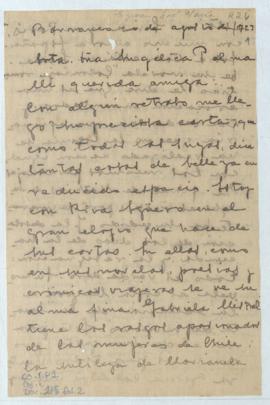 Barranco 20 de agosto de 1923
Srta. Ma
mi querida amiga:
Con algún retraso me lle
gó su preciosa carta, que
como todas las suyas, dice
tantas cosas de belleza en
reducido espacio. Estoy
con Riva Agüero en el
gran elogio que hace de
sus cartas. En ellas, como
en sus novelas, poesías y
crónicas viajeras se ve su
alma fina. Gabriela Mistral
tiene los rasgos apasionados
de las mujeres de Chile.
La de Marianela